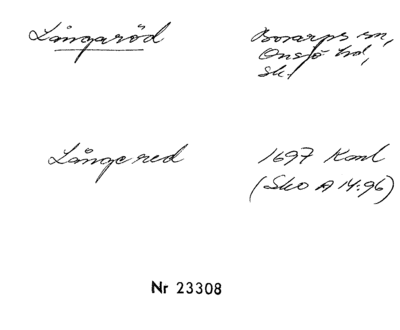 Långaröd
Bosarps sn,
Onsjö hd,
Sk.
Långe red
1697 Koml
(Sko A 14:96)
Nr 23308